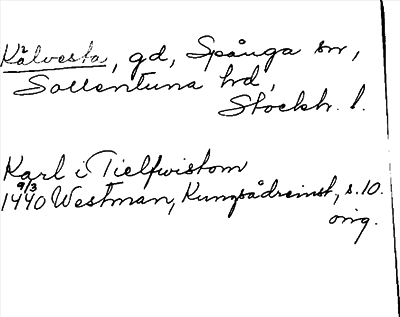 Kälvesta, gd, Spånga sn,
Sollentuna hd,
Stockh. l.
Karl i Tielfwistom
1440 9/3 Westman, Kungsådreinst, s. 10.
orig.